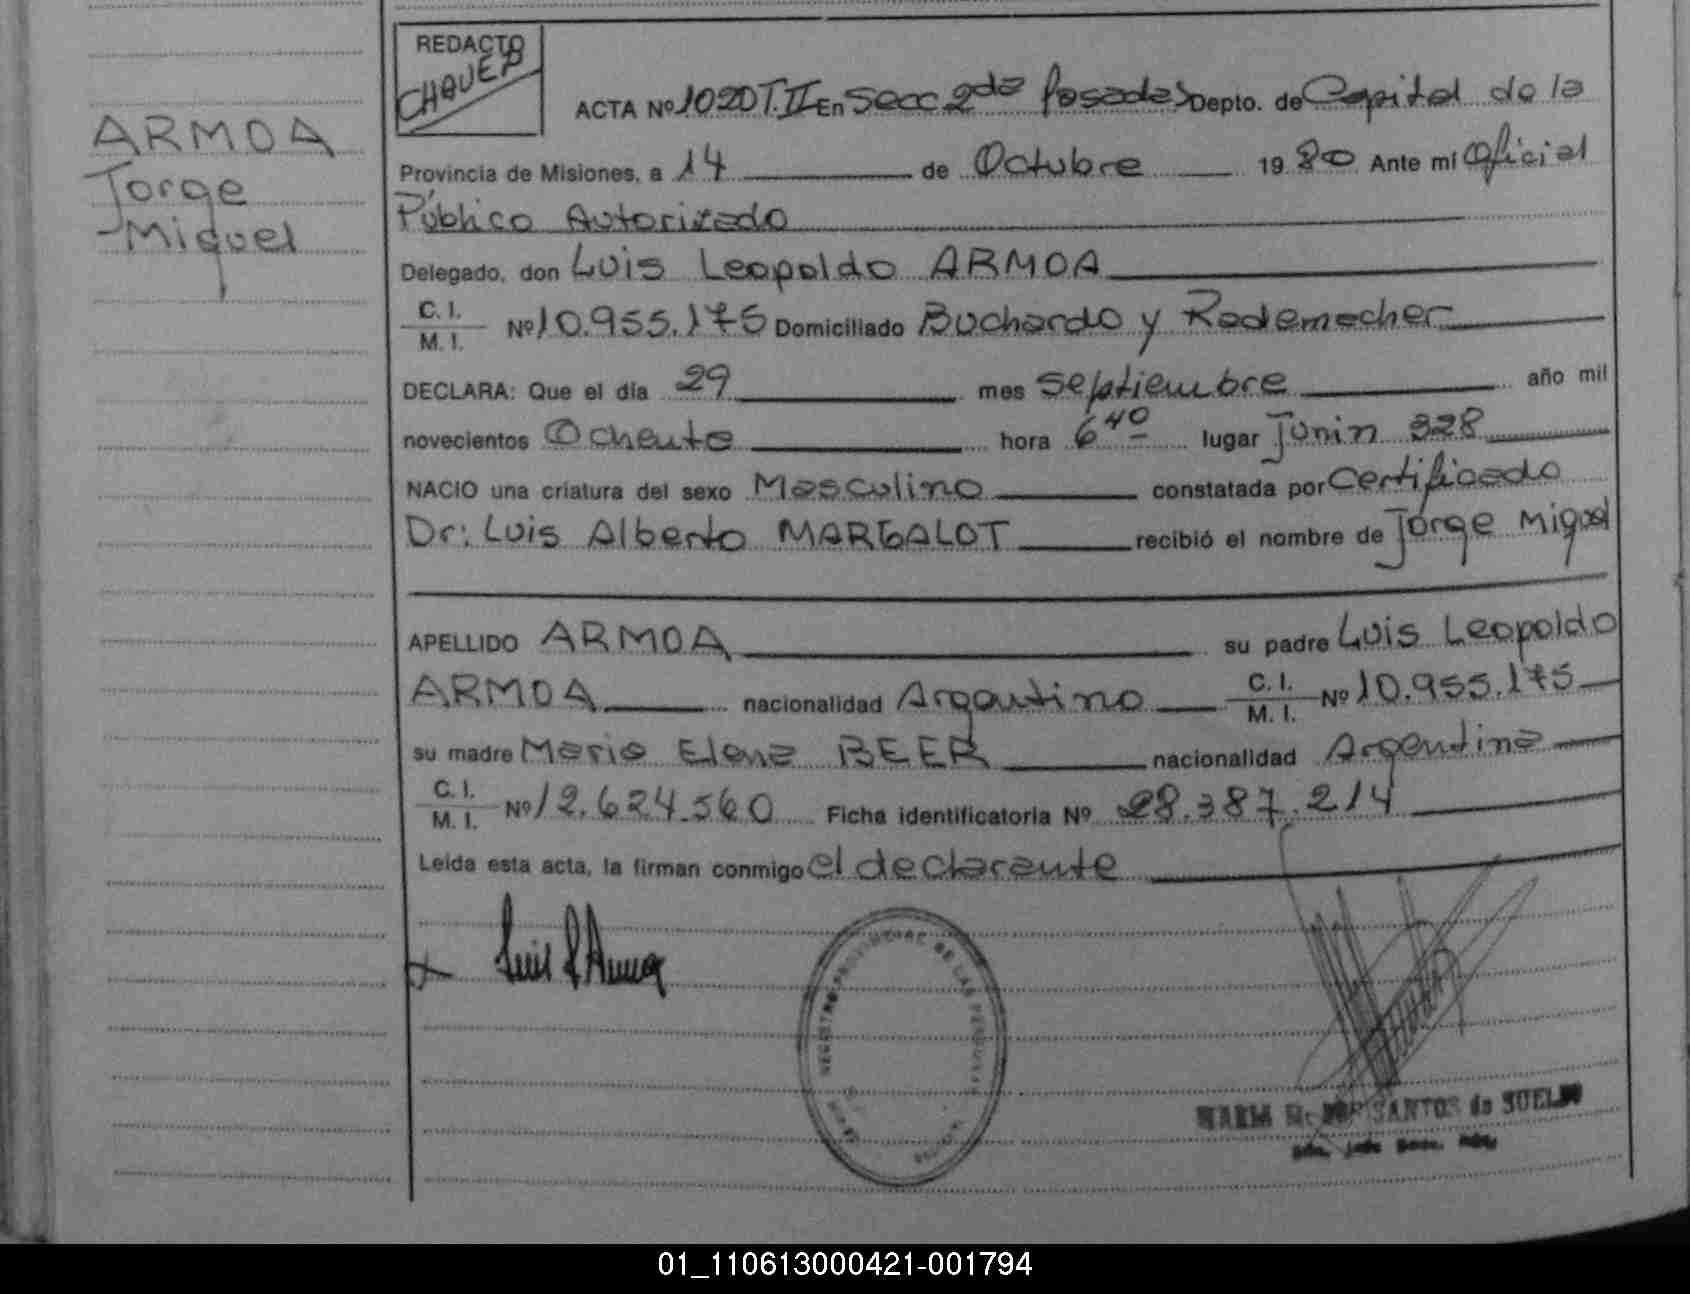 ARMOA
Jorge
Miguel
REDACTO
CHAVEZ
ACTA Nº 1020 T.II En Secc 2da Posadas Depto. de Capital de la
Provincia de Misiones, a 14 de Octubre 19 80 Ante mí Oficial
Público Autorizado
Delegado, don Luis Leopoldo ARMOA
C. I.
M. I.
Nº 10.955.175 Domiciliado Buchardo y Rademacher
DECLARA: Que el día 29 mes Septiembre año mil
novecientos Ochenta hora 6 40 lugar Junin 328
NACIO una criatura del sexo Masculino constatada por Certificado
Dr: Luis Alberto MARGALOT recibió el nombre de Jorge Miguel
APELLIDO ARMOA su padre Luis Leopoldo
ARMOA nacionalidad Argentino C. I. M. I. Nº 10.955.175
su madre Maria Elena BEER nacionalidad Argentina
C. I.
M. I.
Nº 12.624.560 Ficha identificatoria Nº 28.387.214
Leída esta acta, la firman conmigo el declarante
Luis L Armoa
REGISTRO PROVINCIAL DE LAS PERSONAS
SANTOS de SUELDO
01_110613000421-001794